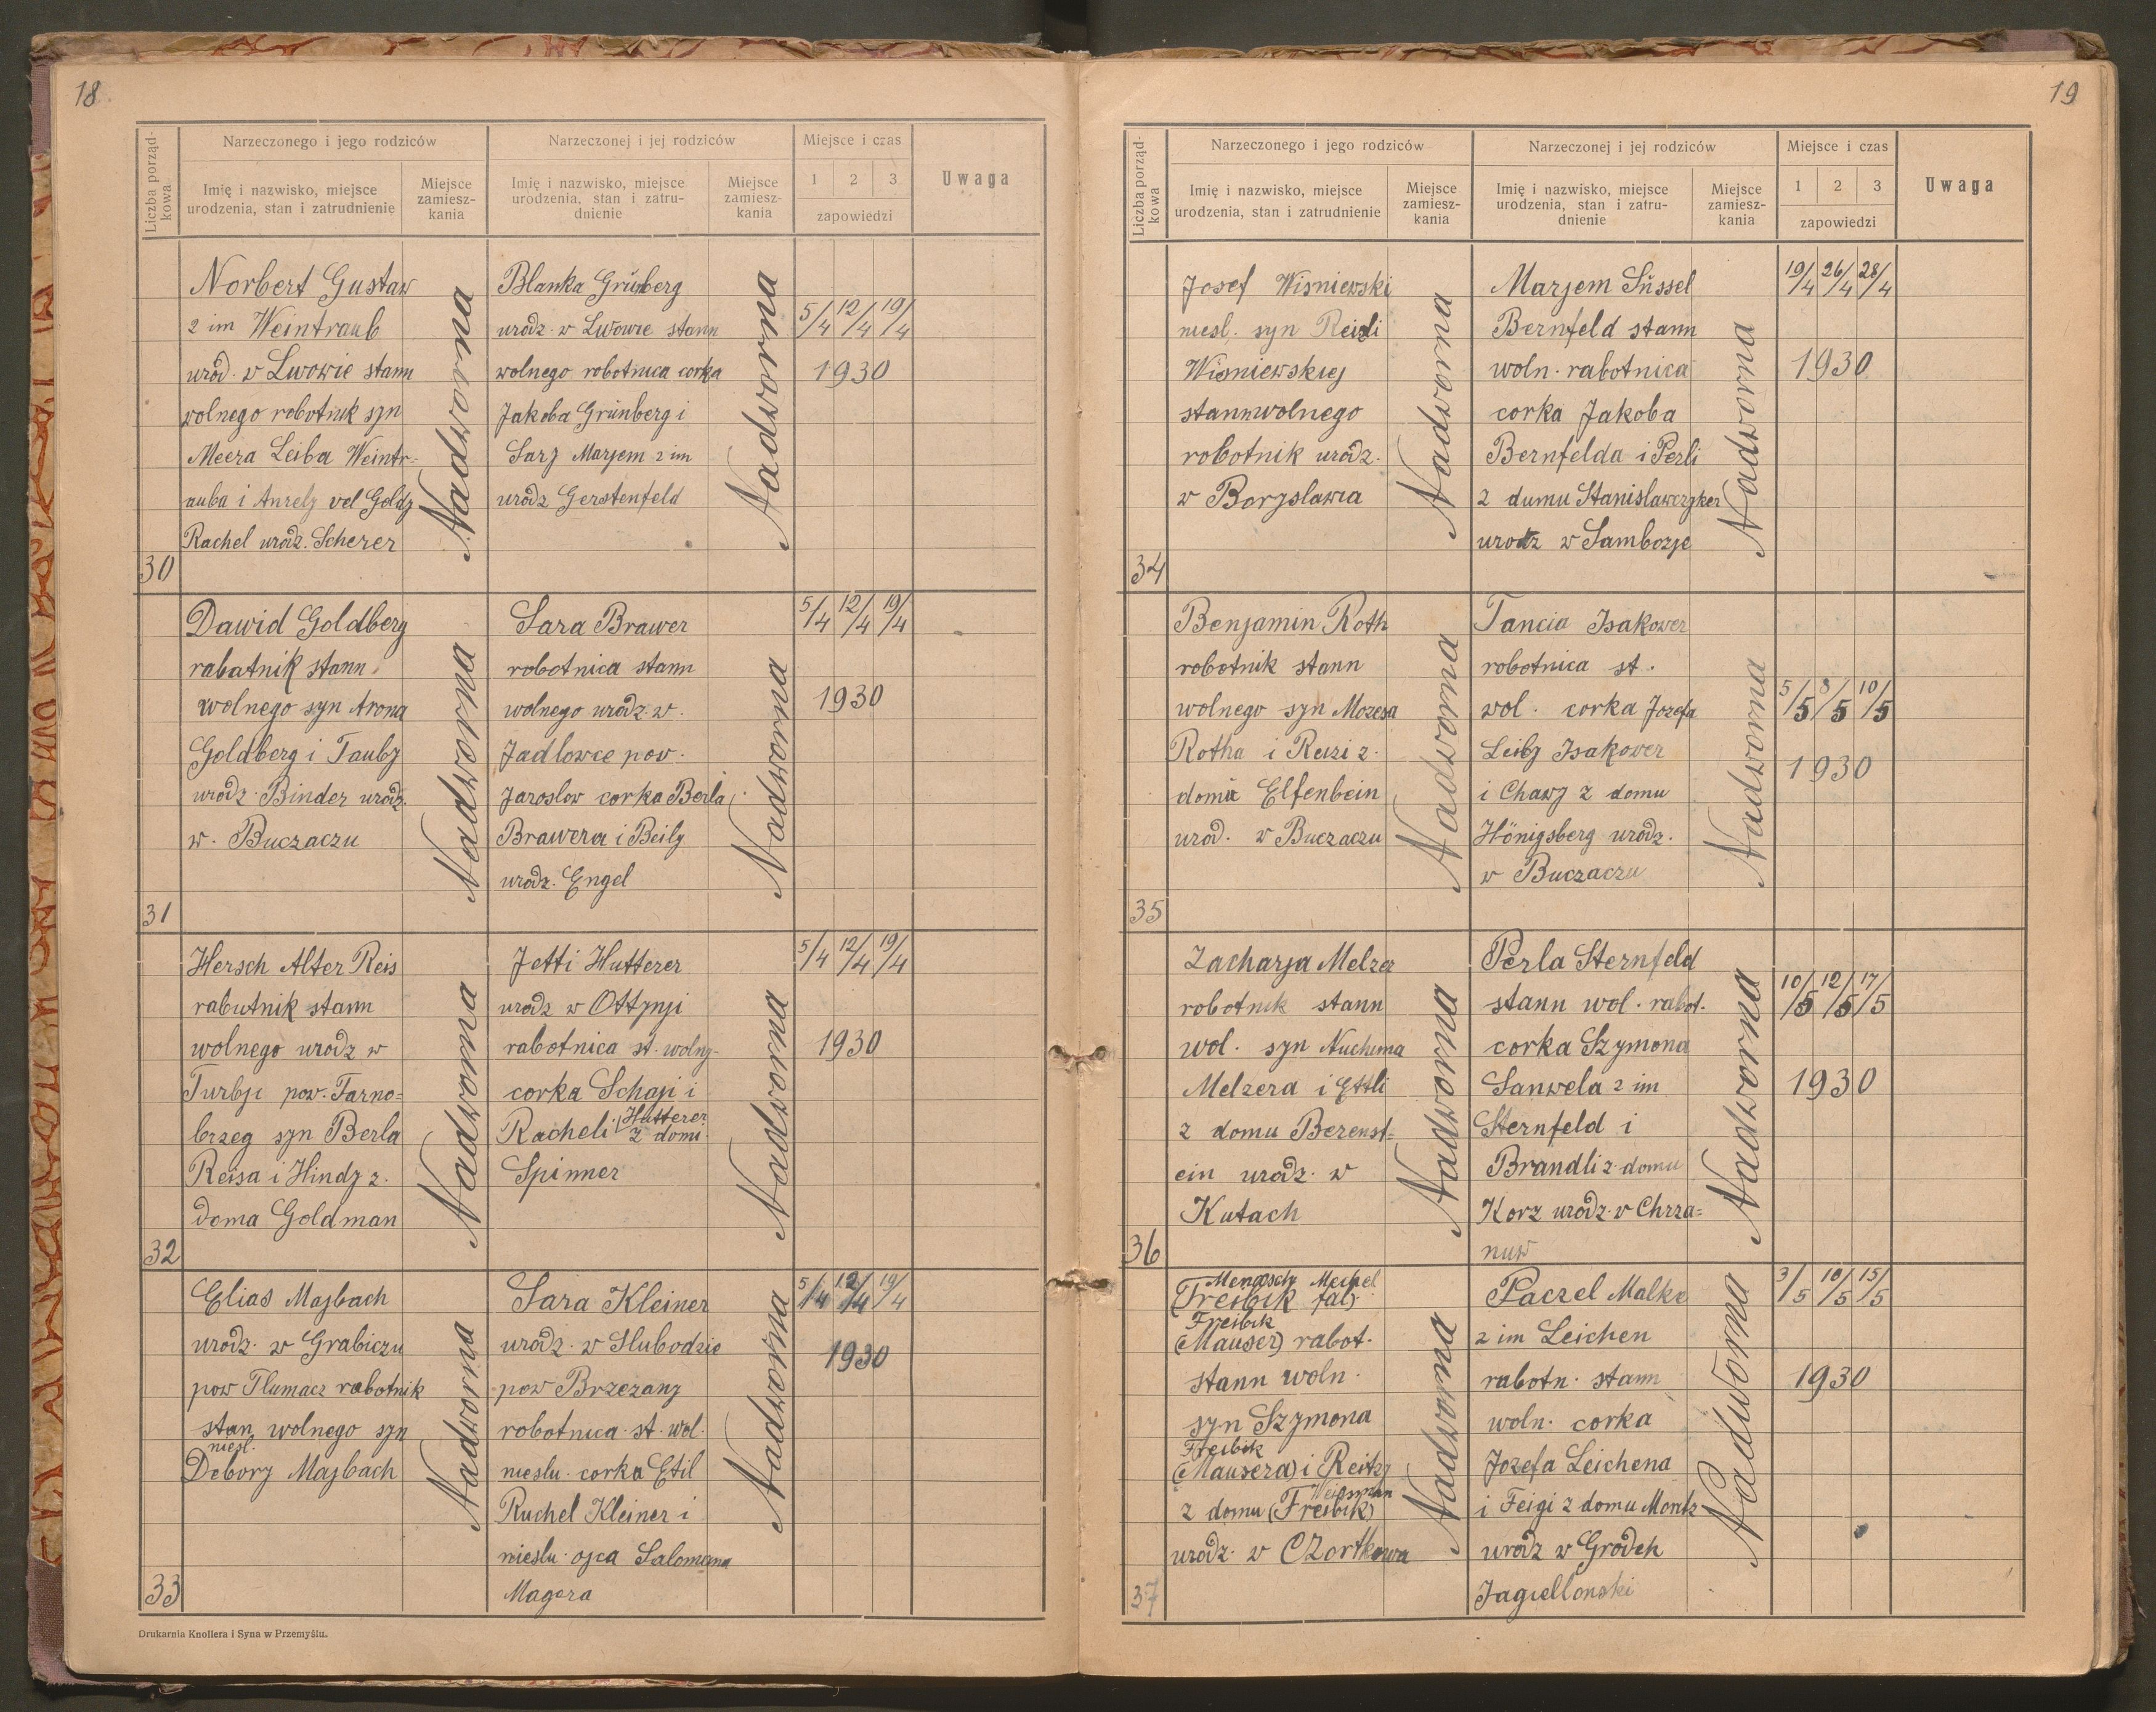 18
Liczba porząd-
kowa
Narzeczonego i jego rodziców
Narzeczonej i jej rodziców
Miejsce i czas
Uwaga
Imię i nazwisko, miejsce
urodzenia, stan i zatrudnienie
Miejsce
zamiesz-
kania
Imię i nazwisko, miejsce
urodzenia, stan i zatru-
dnienie
Miejsce
zamiesz-
kania
1 2 3
zapowiedzi
30
Norbert Gustaw
2 im Weintraub
urod. w Lwowie stann
wolnego robotnik syn
Meera Leiba Weintr-
auba i Anrely vel Goldy
Rachel urodz. Scherer
Nadworna
Blanka Grünberg
urodz. w Lwowie stann
wolnego robotnica corka
Jakoba Grünberg i
Sary Marjem 2 im
urodz Gerstenfeld
Nadworna
5/4 12/4 19/4
1930
31
Dawid Goldberg
rabatnik stann
wolnego syn Arona
Goldberg i Tauby
urodz. Binder urodz.
w. Buczaczu
Nadworna
Sara Brawer
robotnica stann
wolnego urodz. w.
Jadlowce pow.
Jaroslow corka Berla
Brawera i Beily
urodz. Engel
Nadworna
5/4 12/4 19/4
1930
32
Hersch Alter Reis
rabutnik stann
wolnego urodz w
Turbji pow. Tarno=
brzeg syn Berla
Reisa i Hindy z.
doma Goldman
Nadworna
Jetti Hutterer
urodz w Ottynji
rabotnica st. wolny-
corka Schaji i
Racheli (Hutterer
z domi
Spinner
Nadworna
5/4 12/4 19/4
1930
33
Elias Majbach
urodz. w Grabiczu
pow Tlumacz rabotnik
stan wolnego syn
niesl.
Debory Majbach
Nadworna
Sara Kleiner
urodz. w Slubodzie
pow Brzezany
robotnica st. wol.
nieslu. corka Etil
Ruchel Kleiner i
nieslu. ojca Salomona
Magera
Nadworna
5/4 12/4 19/4
1930
Drukarnia Knollera i Syna w Przemyślu.
19
Liczba porząd-
kowa
Narzeczonego i jego rodziców
Narzeczonej i jej rodziców
Miejsce i czas
Uwaga
Imię i nazwisko, miejsce
urodzenia, stan i zatrudnienie
Miejsce
zamiesz-
kania
Imię i nazwisko, miejsce
urodzenia, stan i zatru-
dnienie
Miejsce
zamiesz-
kania
1 2 3
zapowiedzi
34
Josef Wisniewski
niesl. syn Reizli
Wisniewskiej
stannwolnego
robotnik urodz.
w Boryslawia
Nadworna
Marjem Süssel
Bernfeld stann
woln. rabotnica
corka Jakoba
Bernfelda i Perli
z dumu Stanislawczyker
urodz w Samborje
Nadworna
19/4 26/4 28/4
1930
35
Benjamin Roth
robotnik stann
wolnego syn Mozesa
Rotha i Reizi z.
domu Elfenbein
urod. w Buczaczu
Nadworna
Tancia Isakower
robotnica st.
wol. corka Jozefa
Leiby Isakower
i Chawy z domu
Hönigsberg urodz.
w Buczaczu
Nadworna
5/5 8/5 10/5
1930
36
Zacharja Melzer
robotnik stann
wol. syn Nuchima
Melzera i Ettli
z domu Berenst=
ein urodz. w
Kutach
Nadworna
Perla Sternfeld
stann wol. rabot.
corka Szymona
Sanwela 2 im
Sternfeld i
Brandli z domu
Korz urodz. w Chrza=
nuw
Nadworna
10/5 12/5 17/5
1930
37
Menasche Mechel
(Freibik fal)
Freibik
(Mauser) rabot.
stann woln.
syn Szymona
Freibik
(Mausera) i Reitzy
Weissman
z domu (Freibik)
urodz. w Czortkowa
Nadworna
Paczel Malke
2 im Leichen
rabotn. stann
woln. corka
Jozefa Leichena
i Feigi z domu Moritz
urodz w Grodek
Jagiellonski
Nadworna
3/5 10/5 15/5
1930